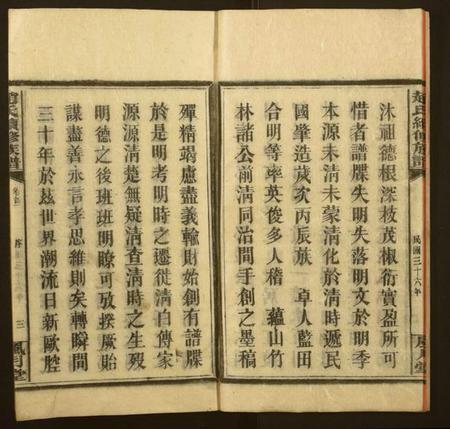 趙氏續修族譜
民國三十六年
沐祖德根深枝茂椒衍實盈所可
惜者譜牒失明失落明文於明季
本源未清未蒙清化於清時遞民
國肇造歲次丙辰族 卓人藍田
合明等率英俊多人稽 蘊山竹
林諸公前清同治間手創之墨稿
殫精竭慮盡義輸財始創有譜牒
於是明考明時之遷徙清白傳家
源源清楚無疑清查清時之生歿
明德之後班班明瞭可攷揆厥貽
謀盡善永言孝思維則矣轉瞬間
三十年於茲世界潮流日新歐腔
趙氏續修族譜
卷首 序
三
風月堂